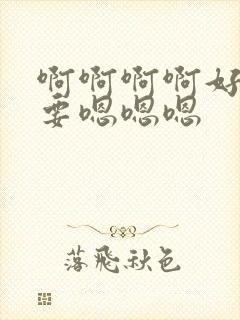 啊啊啊啊好
要嗯嗯嗯
落飛秋色